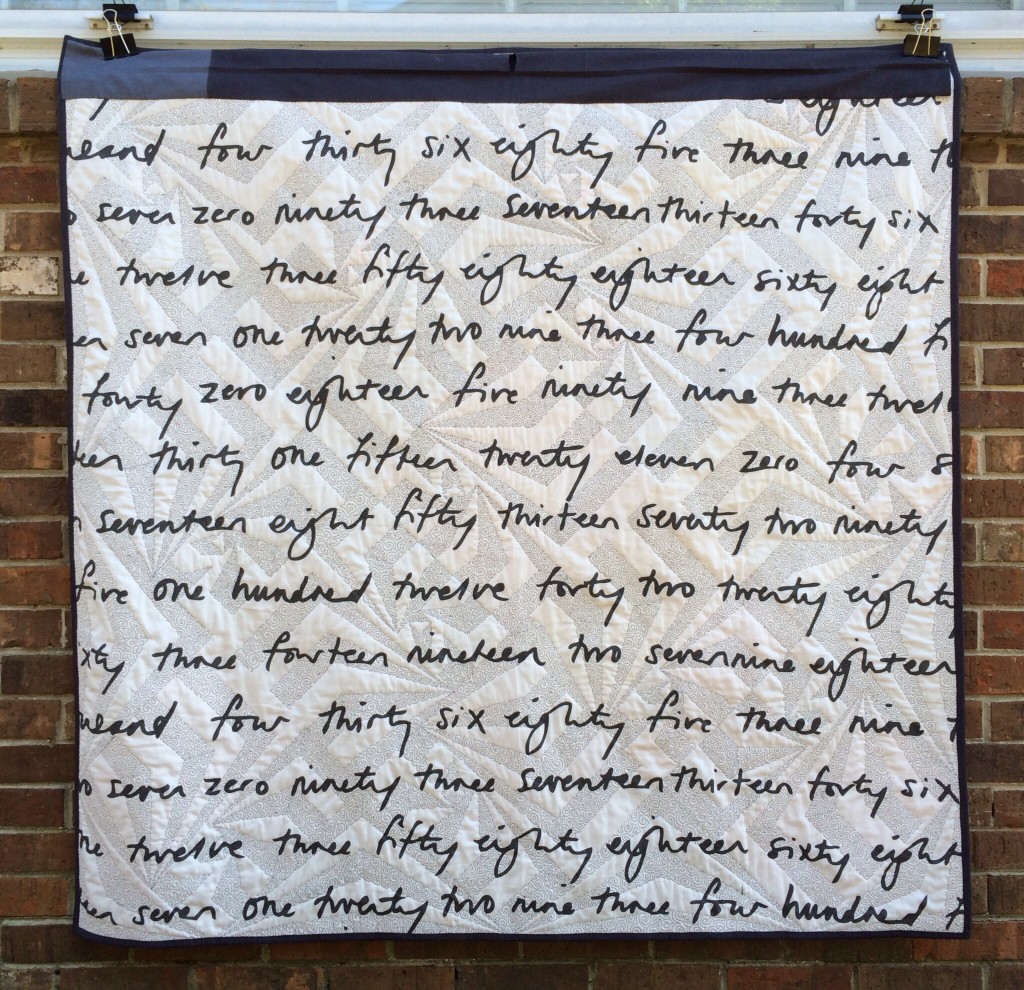 eighteen
four thirty six eighty five three nine
seven zero ninety three seventeen thirteen forty six
twelve three fifty eighty eighteen sixty eight
seven one twenty two nine three four hundred
forty zero eighteen five ninety nine three twel
thirty one fifteen twenty eleven zero four
seventeen eight fifty thirteen seventy two ninety
five one hundred twelve forty two twenty eighty
ixty three fourteen nineteen two seven nine eighteen
four thirty six eighty five three nine
seven zero ninety three seventeen thirteen forty six
twelve three fifty eighty eighteen sixty eight
seven one twenty two nine three four hundred